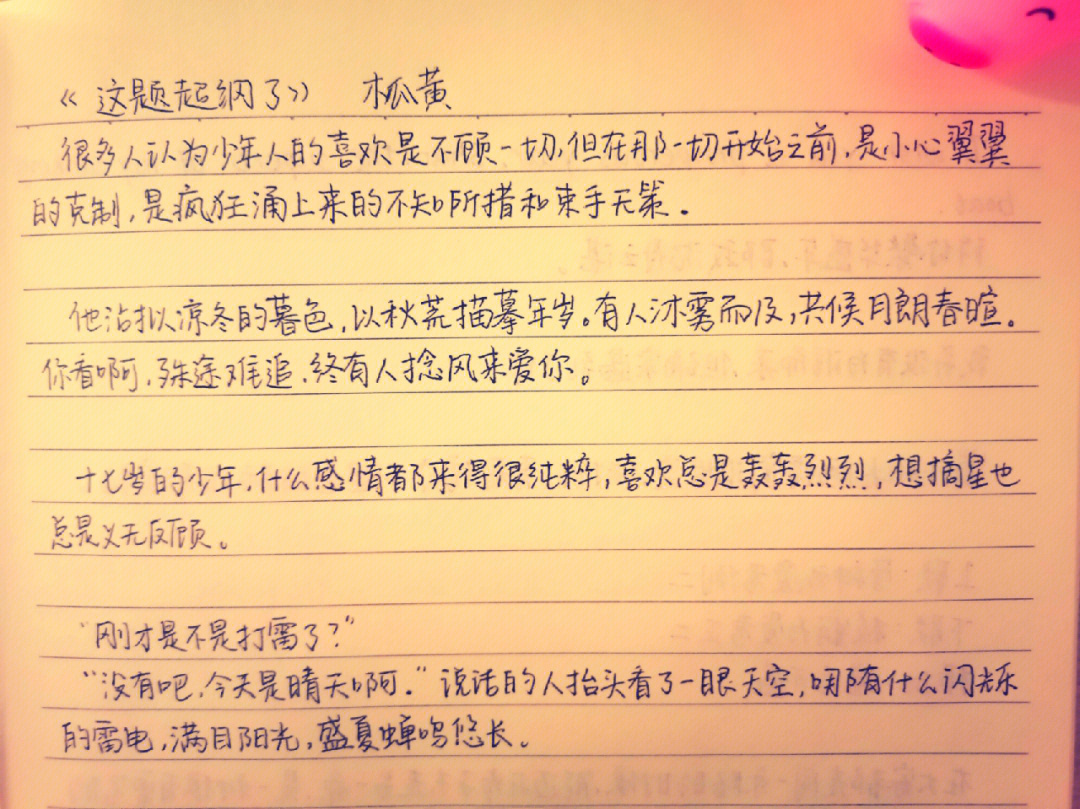 《这题超纲了》 木瓜黄
很多人认为少年人的喜欢是不顾一切,但在那一切开始之前,是小心翼翼
的克制,是疯狂涌上来的不知所措和束手无策.
他沾拟凉冬的暮色,以秋荒描摹年岁。有人沐雾而及,共候月朗春暄.
你看啊,殊途难追,终有人捻风来爱你。
十七岁的少年,什么感情都来得很纯粹,喜欢总是轰轰烈烈,想摘星也
总是义无反顾。
“刚才是不是打雷了?”
“没有吧,今天是晴天啊.”说话的人抬头看了一眼天空,哪有什么闪烁
的雷电,满目阳光,盛夏蝉鸣悠长。